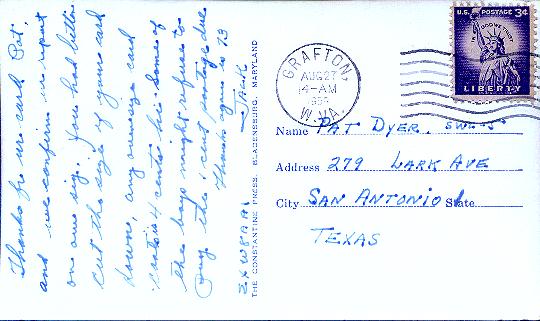 Thanks fr ur card Pat,
and we confirm ur report
on our sig. You had better
cut the size of yours card
down, any oversize card
costs 4 cents hr. Some of
the boys might refuse to
Pay the 1 cent postage due
Thanks again es 73
Jack
EX W8AAI
THE CONSTANTINE PRESS, BLADENSBURG, MARYLAND
GRAFTON,
AUG 27
4-AM
W. VA.
U.S. POSTAGE 3¢
IN GOD WE TRUST
LIBERTY
Name PAT DYER. SWL-5
Address 279 LARK AVE
City SAN ANTONIO State
TEXAS